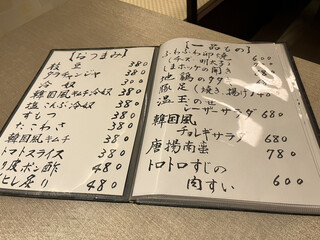 【おつまみ】
枝豆 380
タラチャンジャ 380
冷奴 300
韓国風キムチ冷奴 380
塩こんぶ冷奴 380
すもつ 380
たこわさ 380
韓国風キムチ 380
トマトスライス 380
皮ポン酢 480
ヒレ炙り 480
【一品もの】
ふわふわ卵焼 600
(チーズ 明太子)
しまホッケの開き
地鶏のタタキ
豚足(焼き、揚げ)
温玉のせ
シーザーサラダ 680
韓国風
チョレギサラダ 680
唐揚南蛮 780
トロトロすじの
肉すい 600